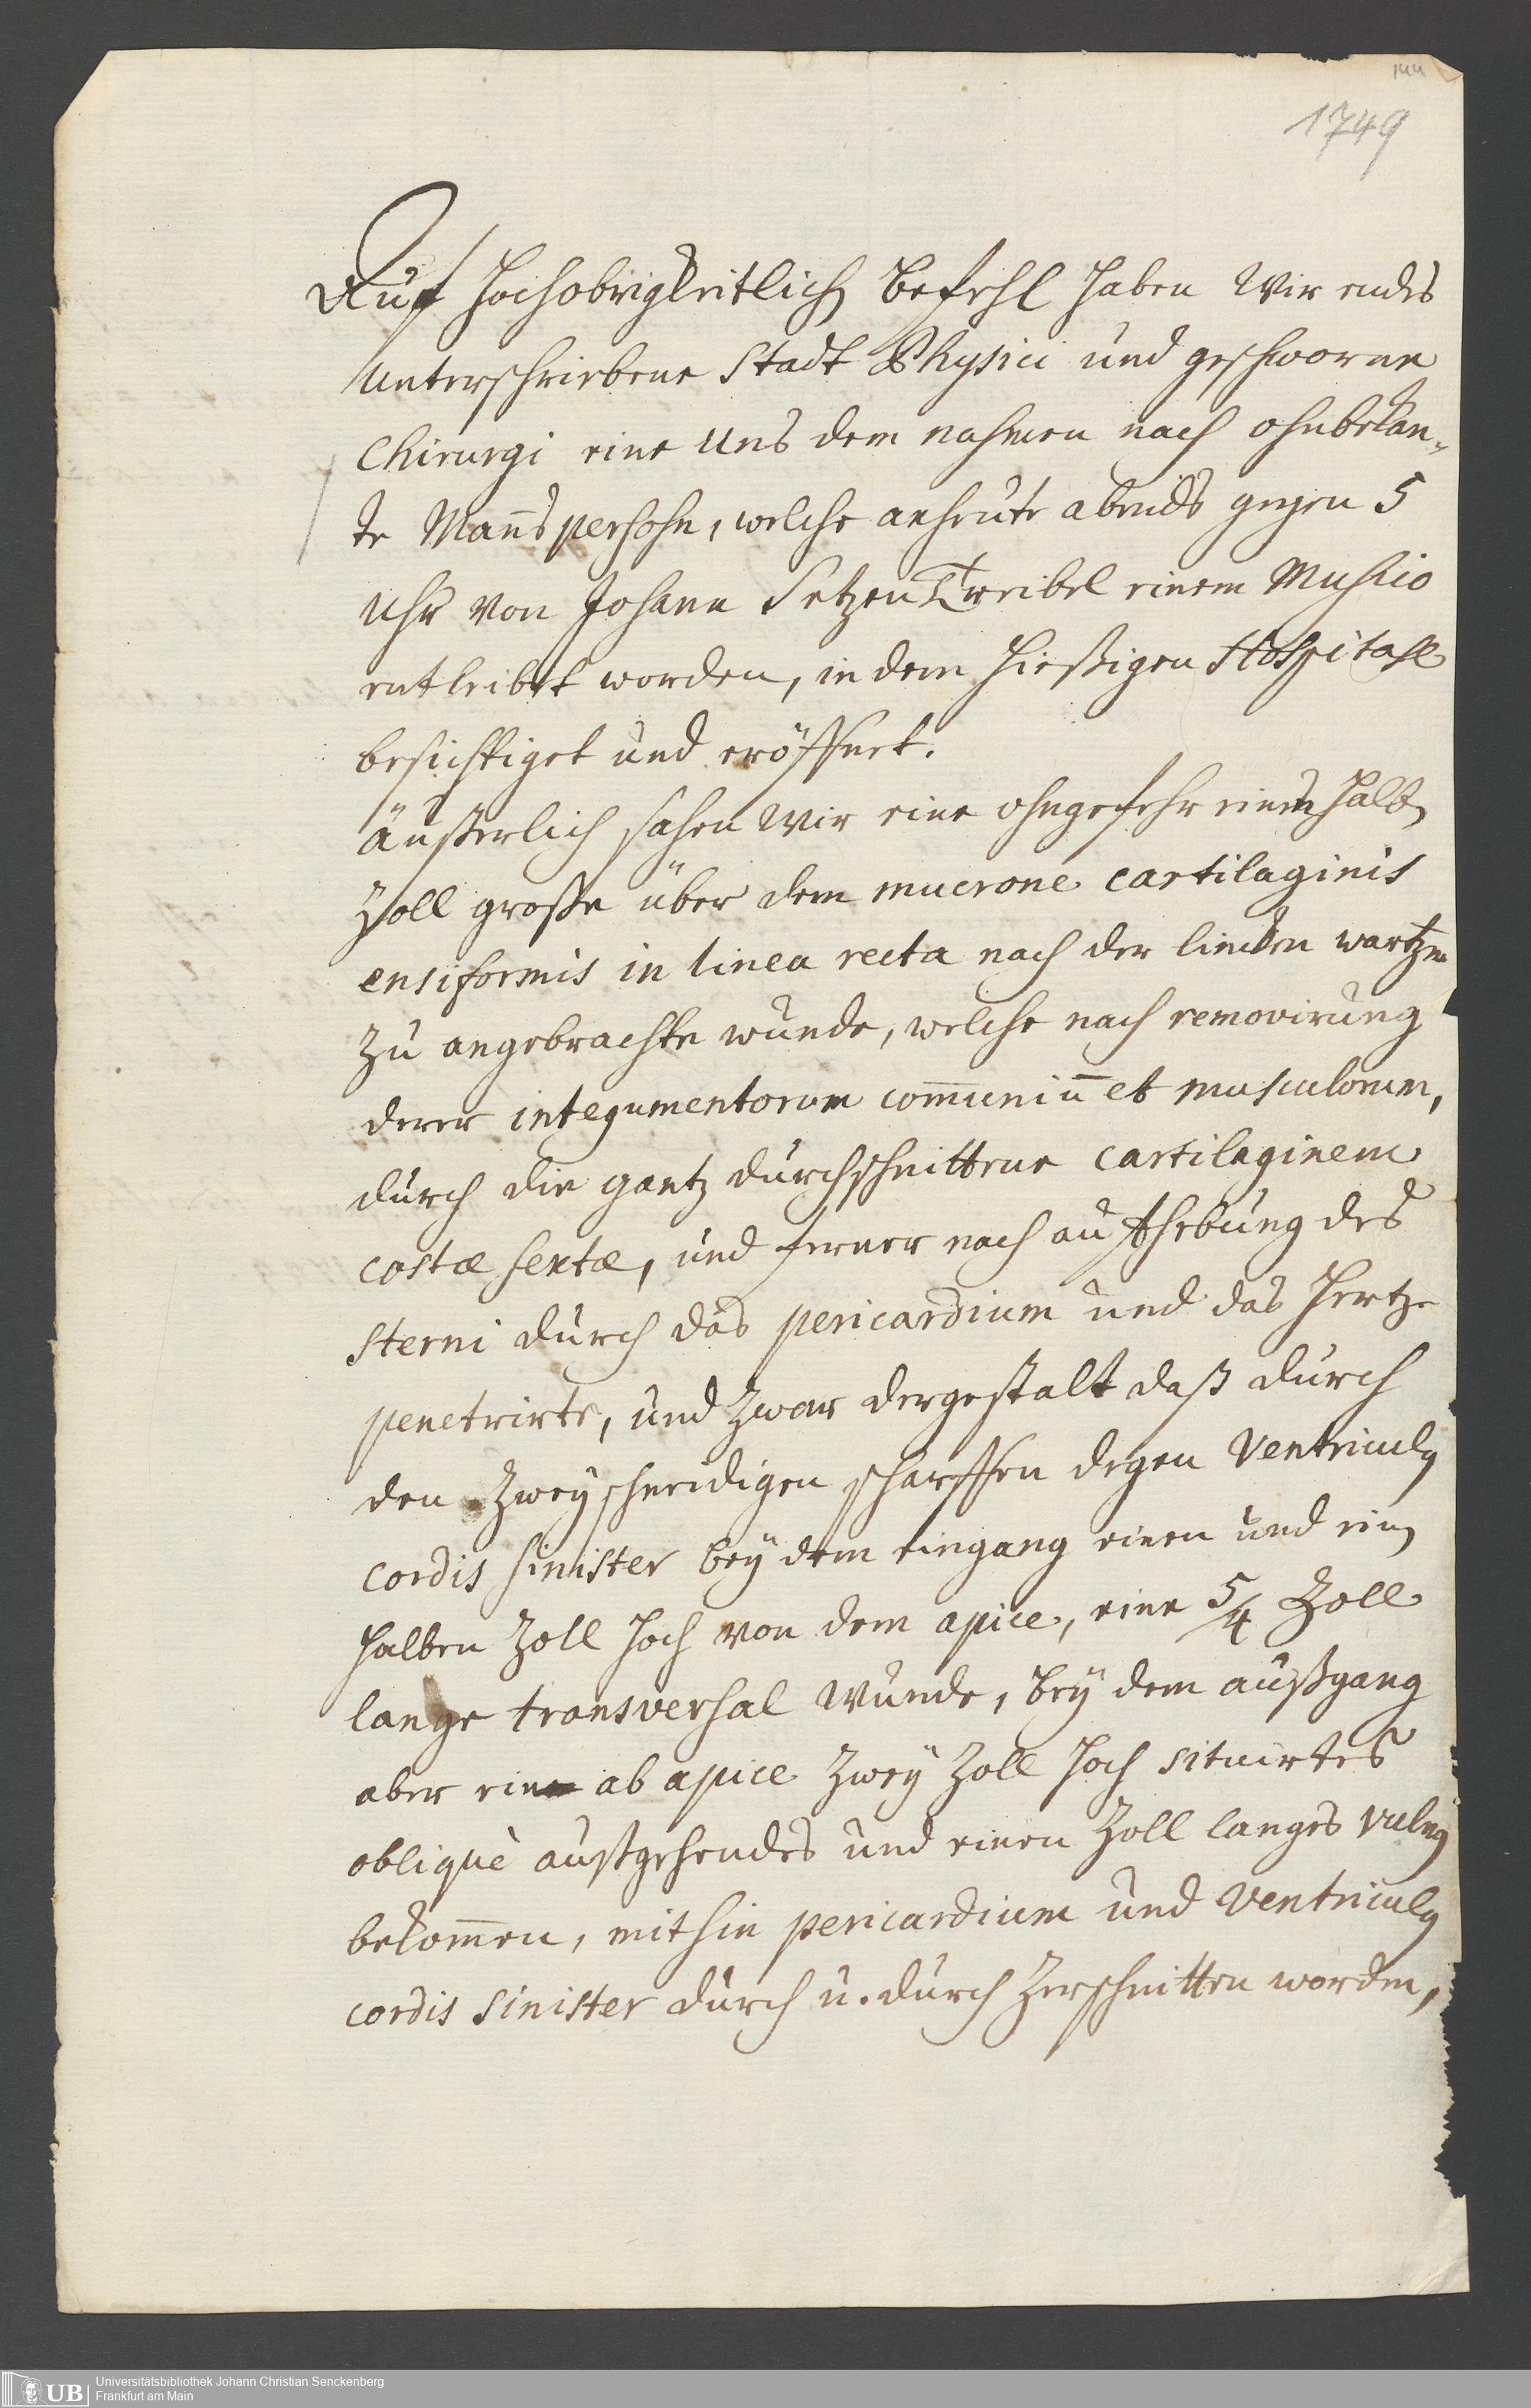 144
1749
Auf Hochobrigkeitlich Befehl haben Wir endes
Unterschriebene Stadt Physici und geschworne
Chirurgi eine Uns dem nahmen nach ohnbekan„
te Mañspersohn, welche anheute abends gegen 5
Uhr von Johann einem Musico
entleibet worden, in dem hießigen Hospitahl
besichtiget und eröffnet.
äußerlich sahen Wir eine ohngefehr einen halben
Zoll große über dem mucrone cartilaginis
ensiformis in linea recta nach der lincken wartzen
zu angebrachte wunde, welche nach removirung
derer integumentorum com̄uniū et musculorum,
durch die gantz durchschnittene cartilaginem
costæ sextæ, und ferner nach auffhebung des
sterni durch das pericardium und das Hertze
penetrirte, und zwar dergestalt daß durch
den zweyschneidigen scharffen degen Ventriculq
cordis sinister bey dem eingang einen und ein
halben Zoll hoch von dem apice, eine 5/4 Zoll
lange transversal Wunde, bey dem außgang
aber ein ab apice zwey Zoll hoch situirtes
obliquè außgehendes und einen Zoll langes vulnq
bekom̄en, mithin pericardium und Ventriculq
cordis sinister durch u. durch zerschnitten worden,
UB
Universitätsbibliothek Johann Christian Senckenberg
Frankfurt am Main